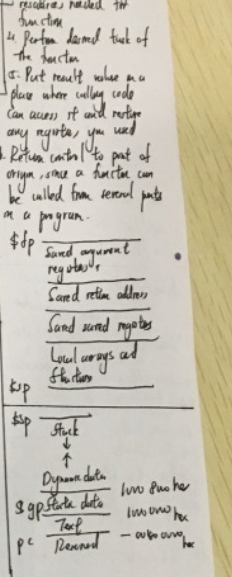 resources needed for
function
4. Perform desired task of
the function
5. Put result value in a
place where calling code
can access it and restore
any registers you used
Return control to point of
origin, since a function can
be called from several points
in a program.
$fp
Saved argument
registers
Saved return address
Saved saved registers
Local arrays and
structures
$sp
$sp
Stack
Dynamic data
$gp Static data 1000 8000 hex
Text 1000 0000 hex
pc Reserved